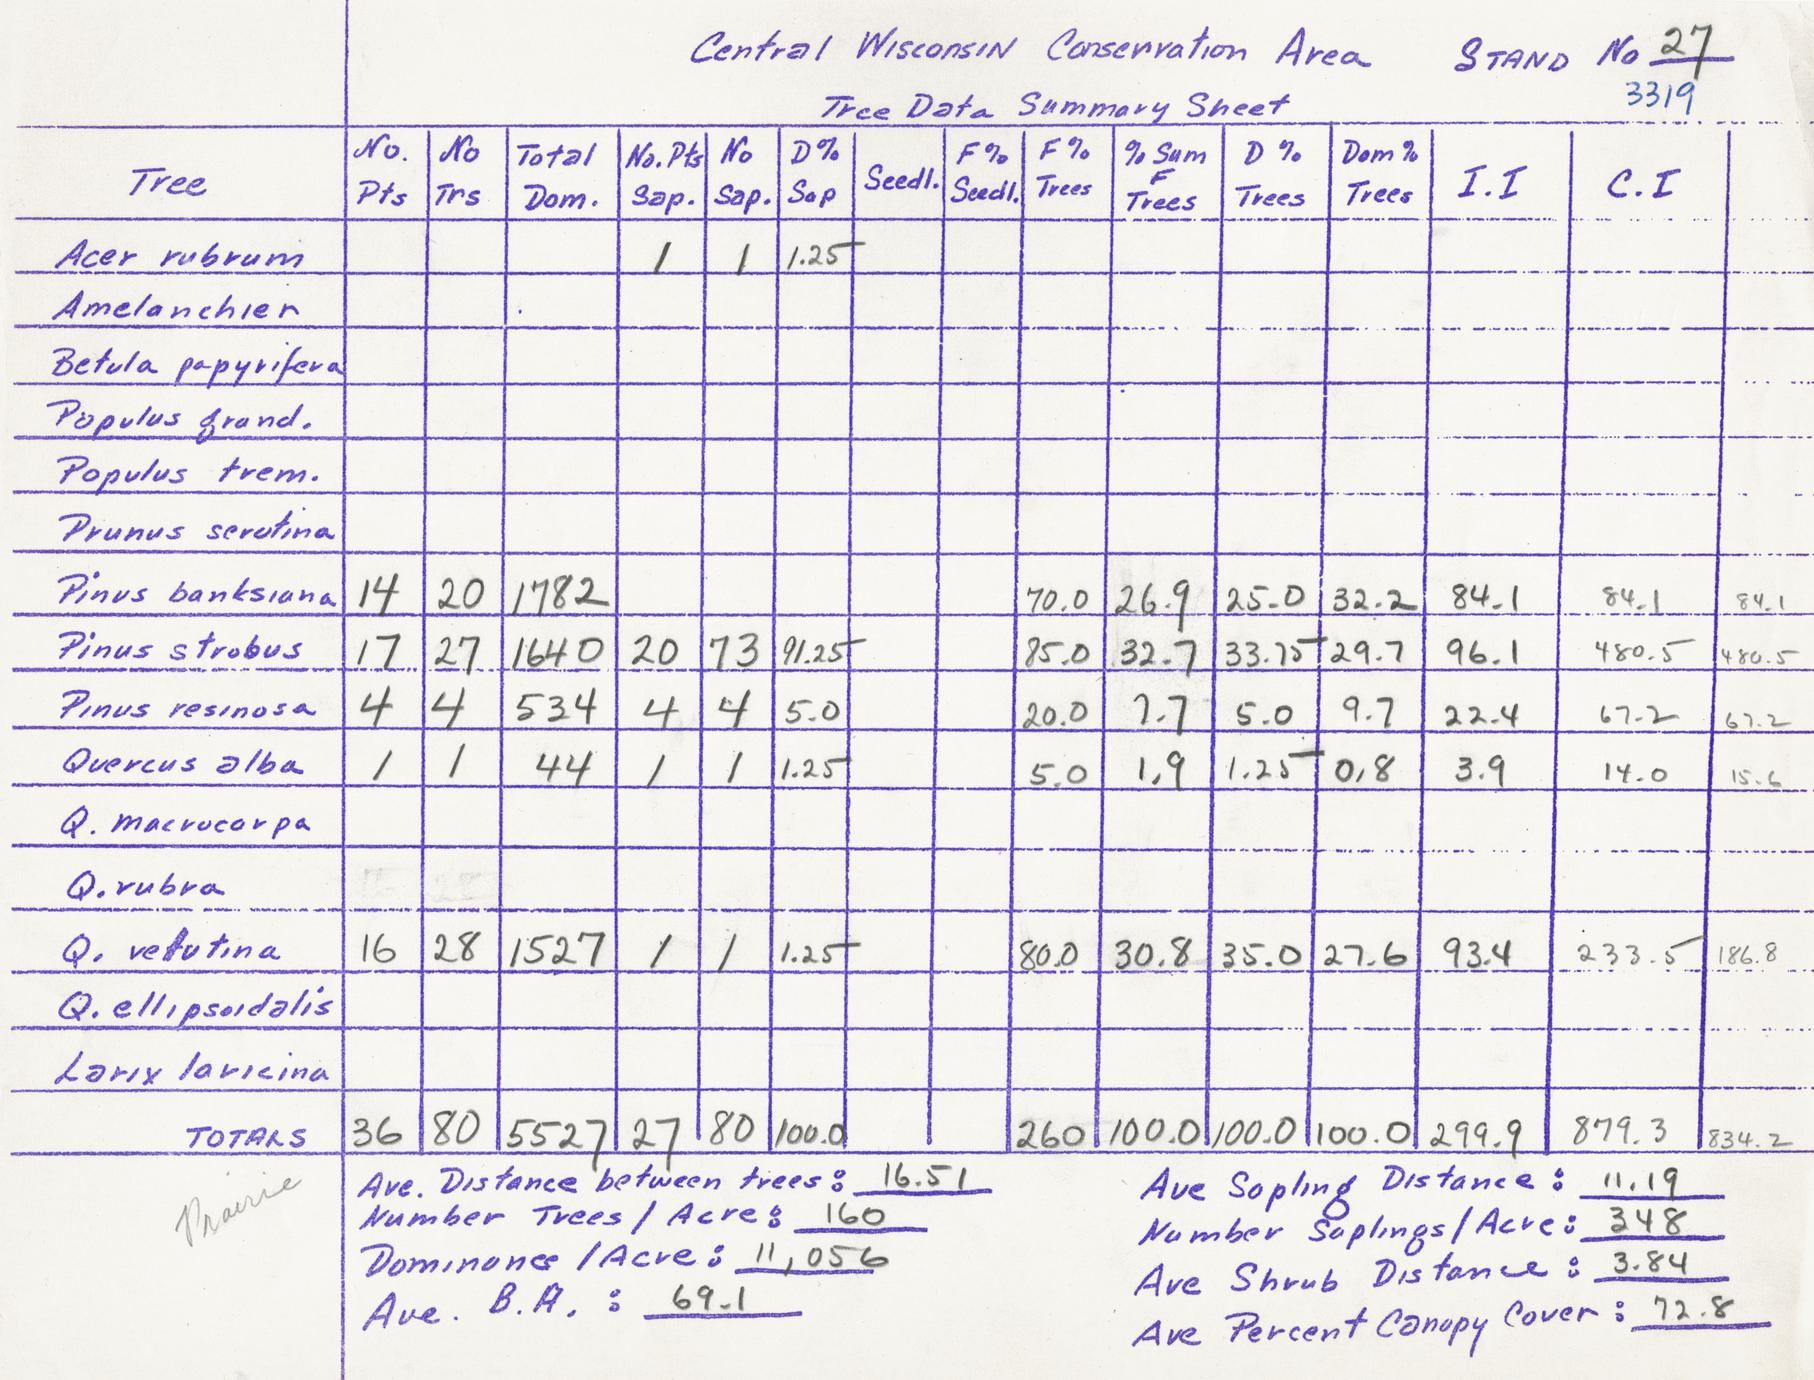 Central Wisconsin Conservation Area STAND No 27
3319
Tree Data Summary Sheet
Tree No. Pts No Trs Total Dom. No. Pts Sap. No Sap. D% Sap Seedl. F% Seedl. F% Trees % Sum F Trees D % Trees Dom % Trees I.I C.I
Acer rubrum 1 1 1.25
Amelanchier
Betula papyrifera
Populus grand.
Populus trem.
Prunus serotina
Pinus banksiana 14 20 1782 70.0 26.9 25.0 32.2 84.1 84.1 84.1
Pinus strobus 17 27 1640 20 73 91.25 85.0 32.7 33.75 29.7 96.1 480.5 480.5
Pinus resinosa 4 4 534 4 4 5.0 20.0 7.7 5.0 9.7 22.4 67.2 67.2
Quercus alba 1 1 44 1 1 1.25 5.0 1.9 1.25 0.8 3.9 14.0 15.6
Q. macrocarpa
Q. rubra
Q. velutina 16 28 1527 1 1 1.25 80.0 30.8 35.0 27.6 93.4 233.5 186.8
Q. ellipsoidalis
Larix laricina
TOTALS 36 80 5527 27 80 100.0 260 100.0 100.0 100.0 299.9 879.3 834.2
Prairie
Ave. Distance between trees: 16.51
Number Trees / Acre: 160
Dominance / Acre: 11,056
Ave. B.A. : 69.1
Ave Sapling Distance: 11.19
Number Saplings / Acre: 348
Ave Shrub Distance: 3.84
Ave Percent Canopy Cover: 72.8